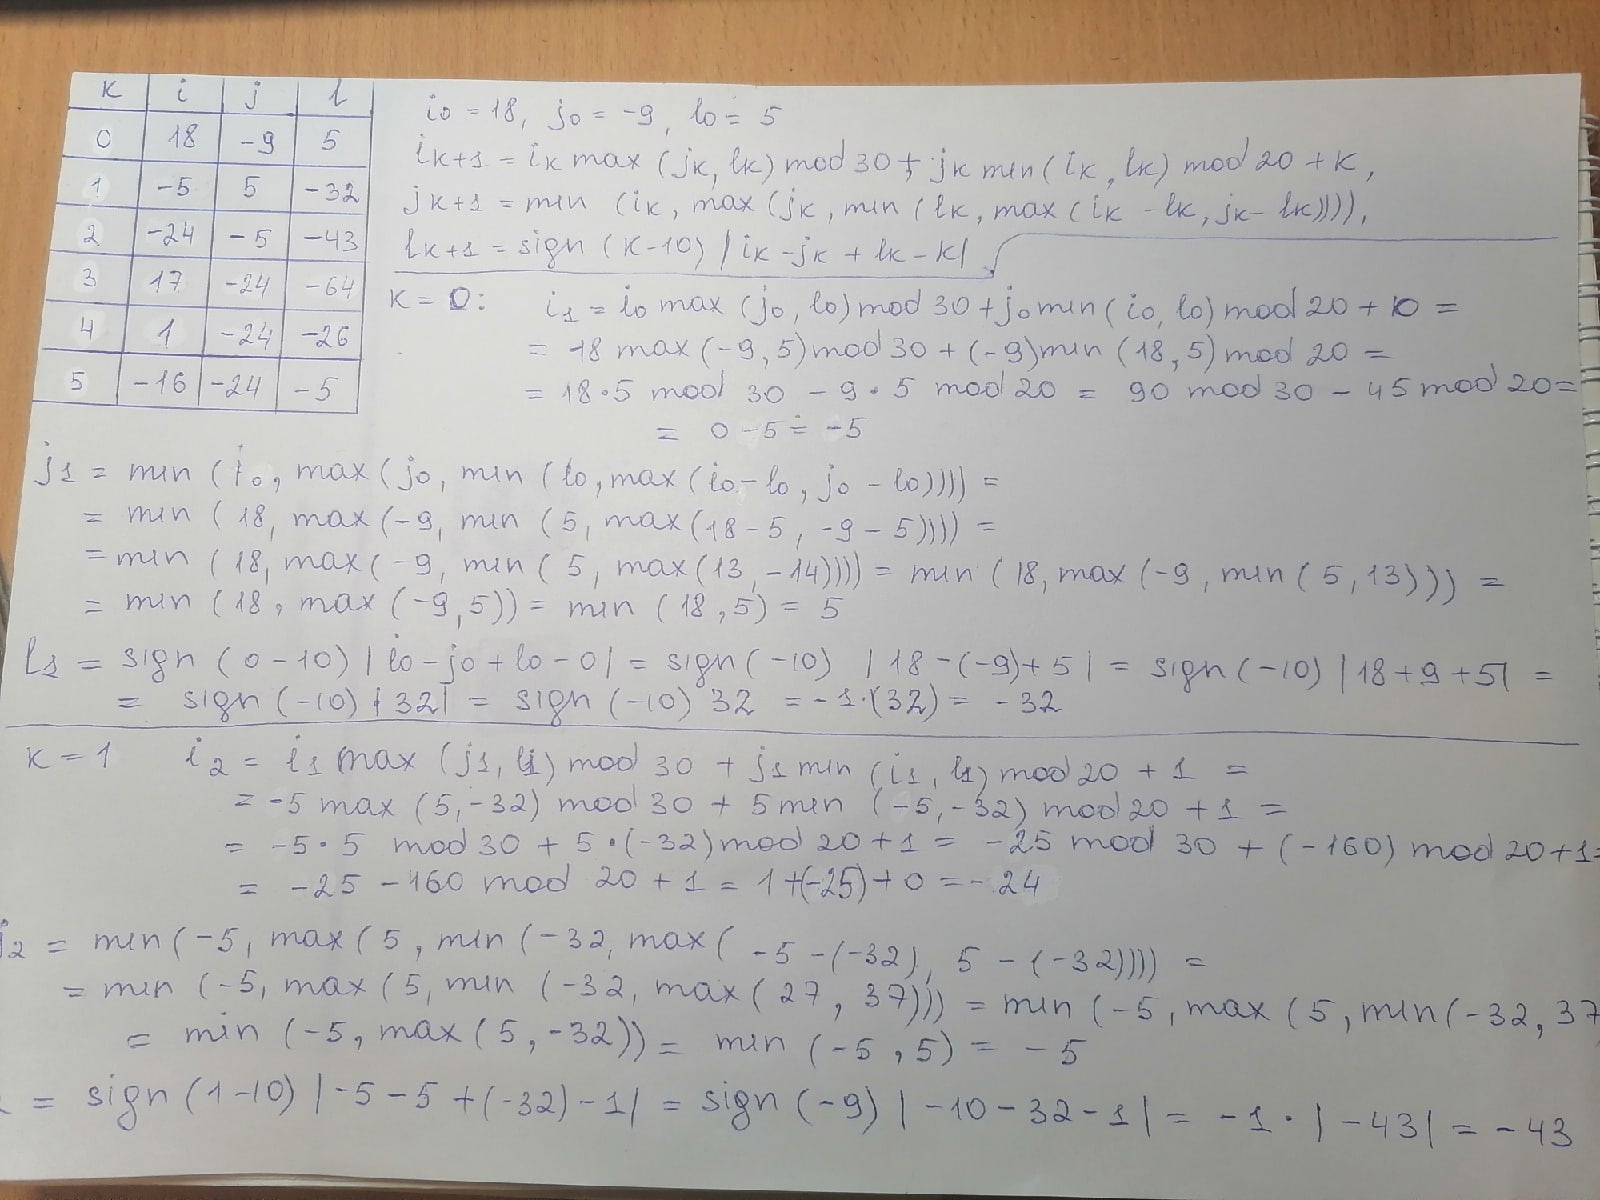 k i j l
0 18 -9 5
1 -5 5 -32
2 -24 -5 -43
3 17 -24 -64
4 1 -24 -26
5 -16 -24 -5
i0 = 18, j0 = -9, l0 = 5
ik+1 = ik max (jk, lk) mod 30 + jk min (ik, lk) mod 20 + k,
jk+1 = min (ik, max (jk, min (lk, max (ik - lk, jk - lk)))),
lk+1 = sign (k-10) | ik - jk + lk - k |
k = 0: i1 = i0 max (j0, l0) mod 30 + j0 min (i0, l0) mod 20 + 0 =
= 18 max (-9, 5) mod 30 + (-9) min (18, 5) mod 20 =
= 18 · 5 mod 30 - 9 · 5 mod 20 = 90 mod 30 - 45 mod 20 =
= 0 - 5 = -5
j1 = min (i0, max (j0, min (l0, max (i0 - l0, j0 - l0)))) =
= min (18, max (-9, min (5, max (18 - 5, -9 - 5)))) =
= min (18, max (-9, min (5, max (13, -14)))) = min (18, max (-9, min (5, 13))) =
= min (18, max (-9, 5)) = min (18, 5) = 5
l1 = sign (0 - 10) | i0 - j0 + l0 - 0 | = sign (-10) | 18 - (-9) + 5 | = sign (-10) | 18 + 9 + 5 | =
= sign (-10) | 32 | = sign (-10) 32 = -1 · (32) = -32
k = 1 i2 = i1 max (j1, l1) mod 30 + j1 min (i1, l1) mod 20 + 1 =
= -5 max (5, -32) mod 30 + 5 min (-5, -32) mod 20 + 1 =
= -5 · 5 mod 30 + 5 · (-32) mod 20 + 1 = -25 mod 30 + (-160) mod 20 + 1 =
= -25 - 160 mod 20 + 1 = 1 + (-25) + 0 = -24
j2 = min (-5, max (5, min (-32, max (-5 - (-32), 5 - (-32)))) =
= min (-5, max (5, min (-32, max (27, 37))) = min (-5, max (5, min (-32, 37
= min (-5, max (5, -32)) = min (-5, 5) = -5
= sign (1 - 10) | -5 - 5 + (-32) - 1 | = sign (-9) | -10 - 32 - 1 | = -1 · | -43 | = -43